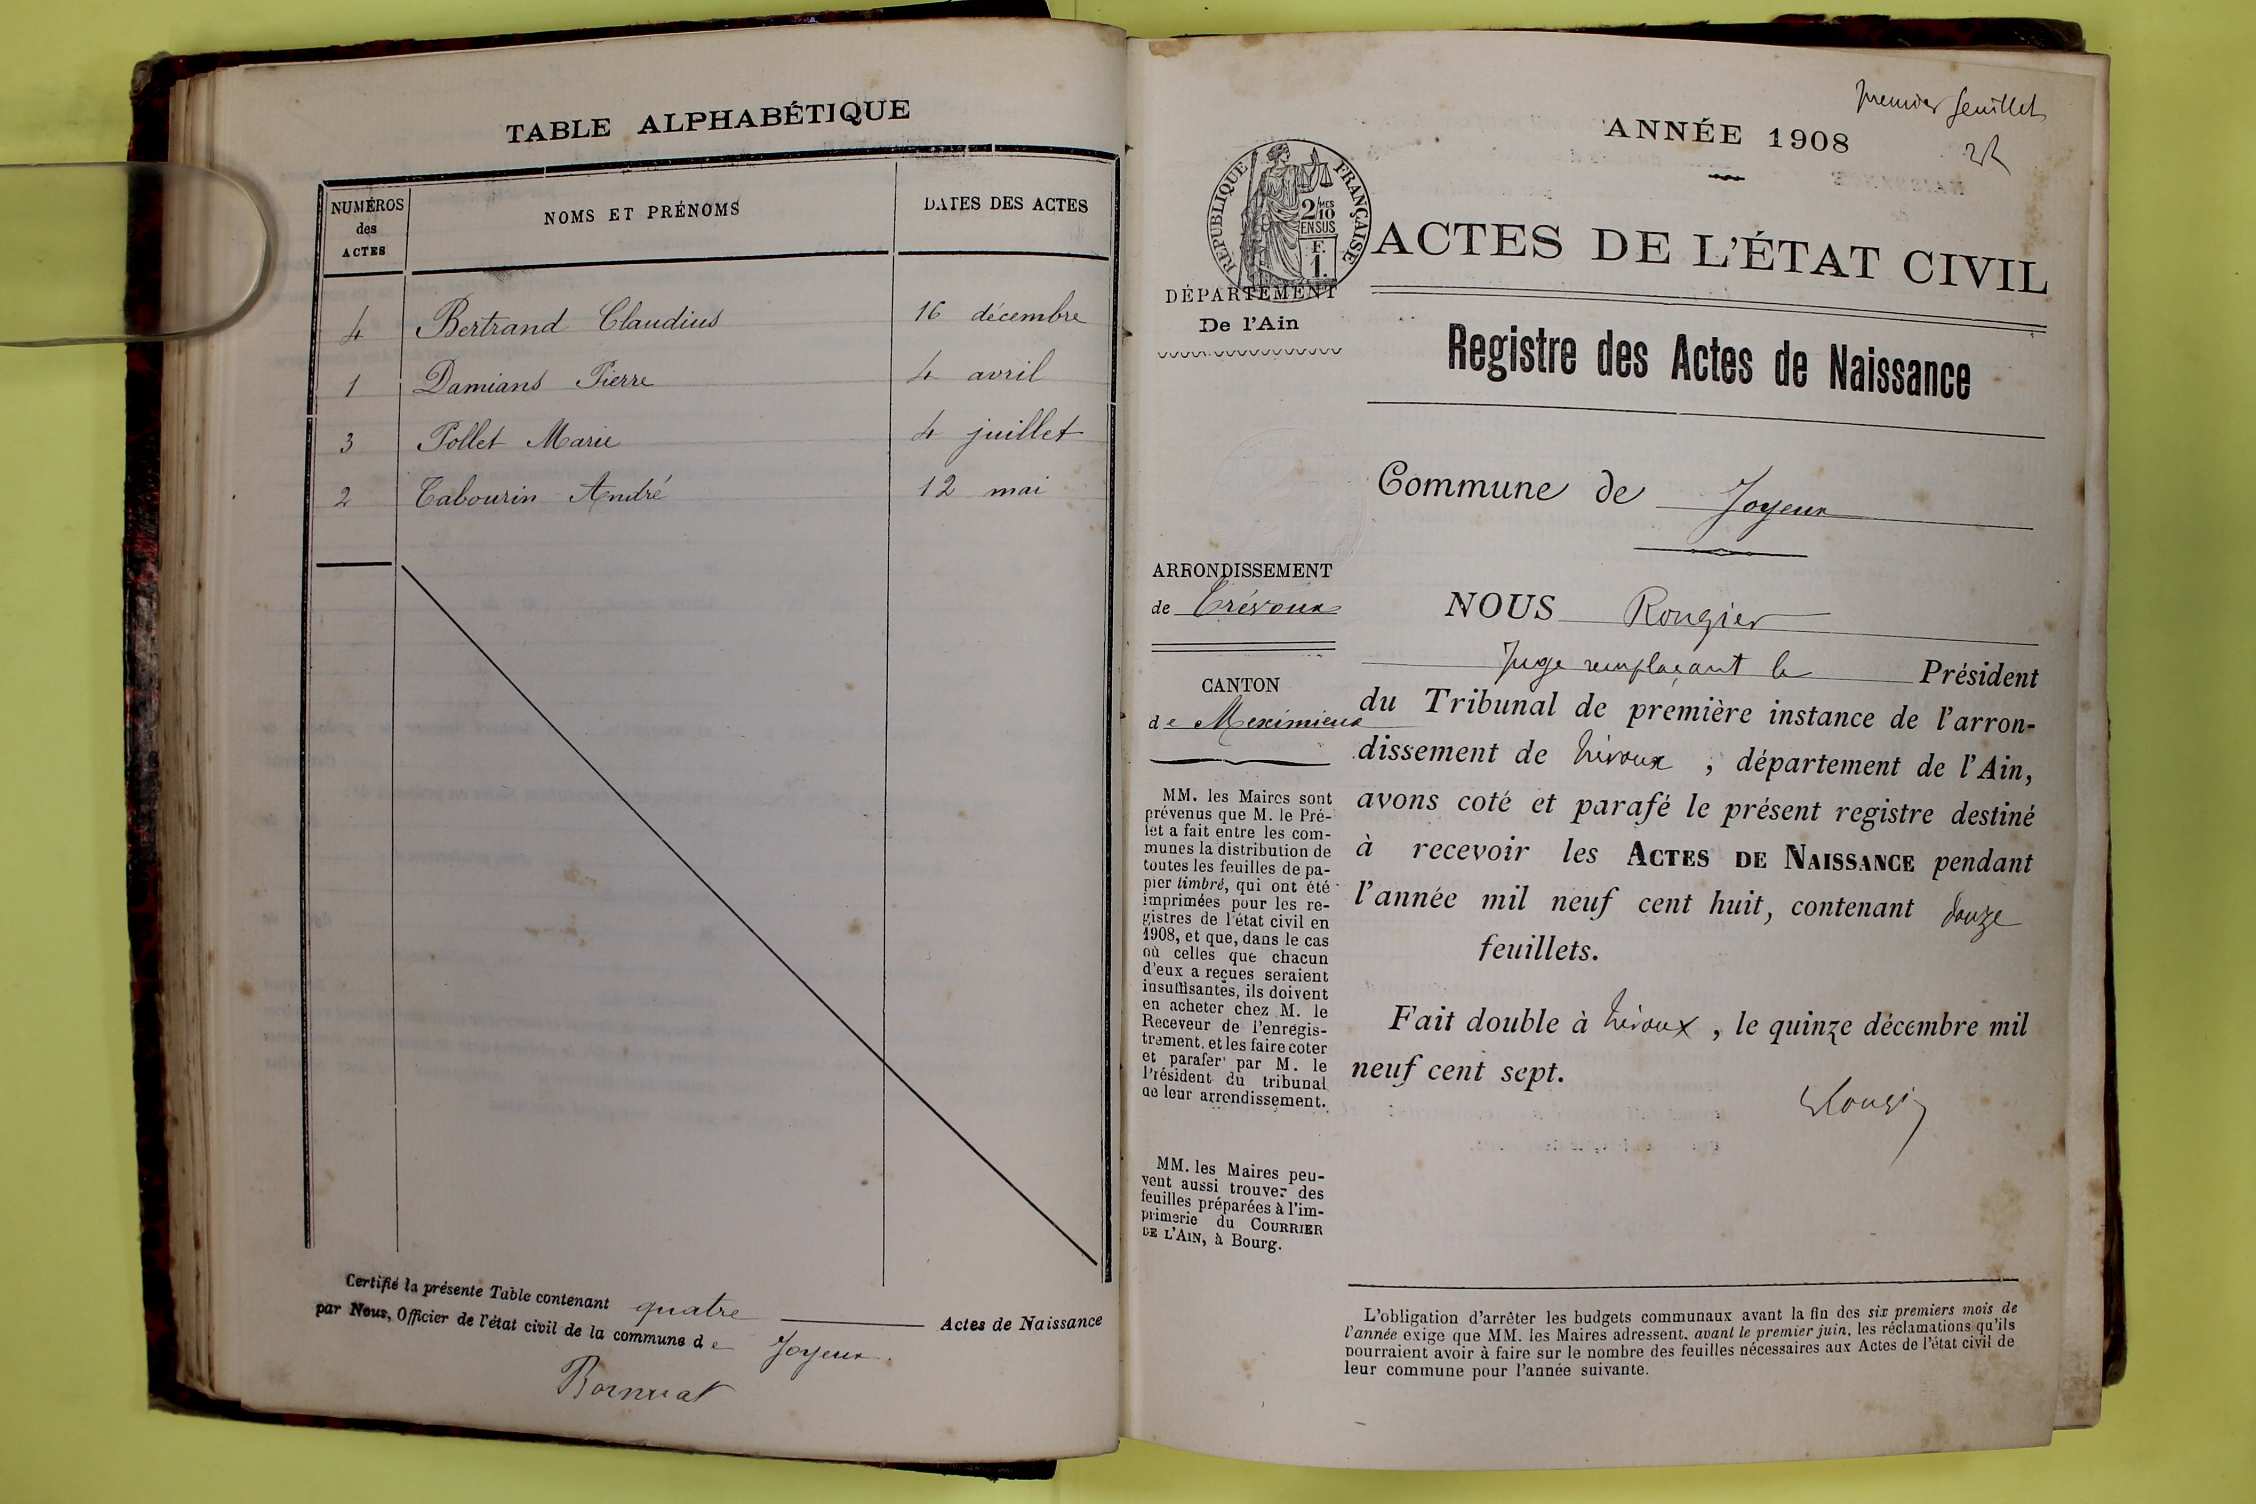 TABLE ALPHABÉTIQUE
NUMÉROS des ACTES
NOMS ET PRÉNOMS
DATES DES ACTES
4 Bertrand Claudius 16 décembre
1 Damians Pierre 4 avril
3 Pollet Marie 4 juillet
2 Tabourin André 12 mai
Certifié la présente Table contenant quatre Actes de Naissance
par Nous, Officier de l'état civil de la commune de Joyeux.
premier feuillet
ANNÉE 1908
RÉPUBLIQUE FRANÇAISE
2/10 MES
EN SUS
F.
1.
ACTES DE L'ÉTAT CIVIL
DÉPARTEMENT
De l'Ain
Registre des Actes de Naissance
Commune de Joyeux
ARRONDISSEMENT
de Trévoux
CANTON
de Meximieux
MM. les Maires sont
prévenus que M. le Pré-
fet a fait entre les com-
munes la distribution de
toutes les feuilles de pa-
pier timbré, qui ont été
imprimées pour les re-
gistres de l'état civil en
1908, et que, dans le cas
où celles que chacun
d'eux a reçues seraient
insuffisantes, ils doivent
en acheter chez M. le
Receveur de l'enregis-
trement, et les faire coter
et parafer par M. le
Président du tribunal
de leur arrondissement.
MM. les Maires peu-
vent aussi trouver des
feuilles préparées à l'im-
primerie du COURRIER
DE L'AIN, à Bourg.
NOUS Rougier
Juge remplaçant le Président
du Tribunal de première instance de l'arron-
dissement de Trévoux, département de l'Ain,
avons coté et parafé le présent registre destiné
à recevoir les ACTES DE NAISSANCE pendant
l'année mil neuf cent huit, contenant douze
feuillets.
Fait double à Trévoux, le quinze décembre mil
neuf cent sept.
Rougier
L'obligation d'arrêter les budgets communaux avant la fin des six premiers mois de
l'année exige que MM. les Maires adressent, avant le premier juin, les réclamations qu'ils
pourraient avoir à faire sur le nombre des feuilles nécessaires aux Actes de l'état civil de
leur commune pour l'année suivante.